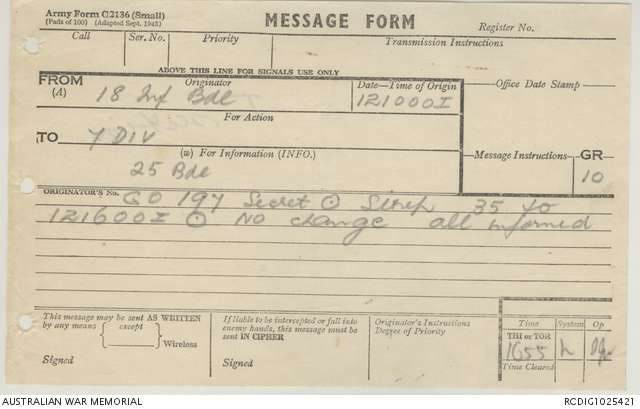 Army Form C2136 (Small)
(Pads of 100) (Adapted Sept. 1943)
MESSAGE FORM
Register No.
Call Ser. No. Priority Transmission Instructions
ABOVE THIS LINE FOR SIGNALS USE ONLY
FROM Originator Date—Time of Origin Office Date Stamp
(A) 18 Inf Bde 121000I
For Action
TO 7 DIV
(w) For Information (INFO.) Message Instructions GR
25 Bde 10
ORIGINATOR'S No. GO 197 Secret ⊙ Sitrep 35 to
121600I ⊙ No change all informed
This message may be sent AS WRITTEN
by any means { except } Wireless
Signed
If liable to be intercepted or fall into
enemy hands, this message must be
sent IN CIPHER
Signed
Originator's Instructions
Degree of Priority
Time System Op
THI or TOR
1655
Time Cleared
AUSTRALIAN WAR MEMORIAL RCDIG1025421